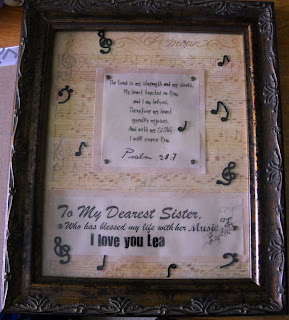 The Lord is my strength and my shield,
My heart trusted in Him,
and I am helped,
Therefore my heart
greatly rejoices,
And with my SONG
I will praise Him
Psalm 28:7
To My Dearest Sister,
Who has blessed my life with her Music
I love you Lea